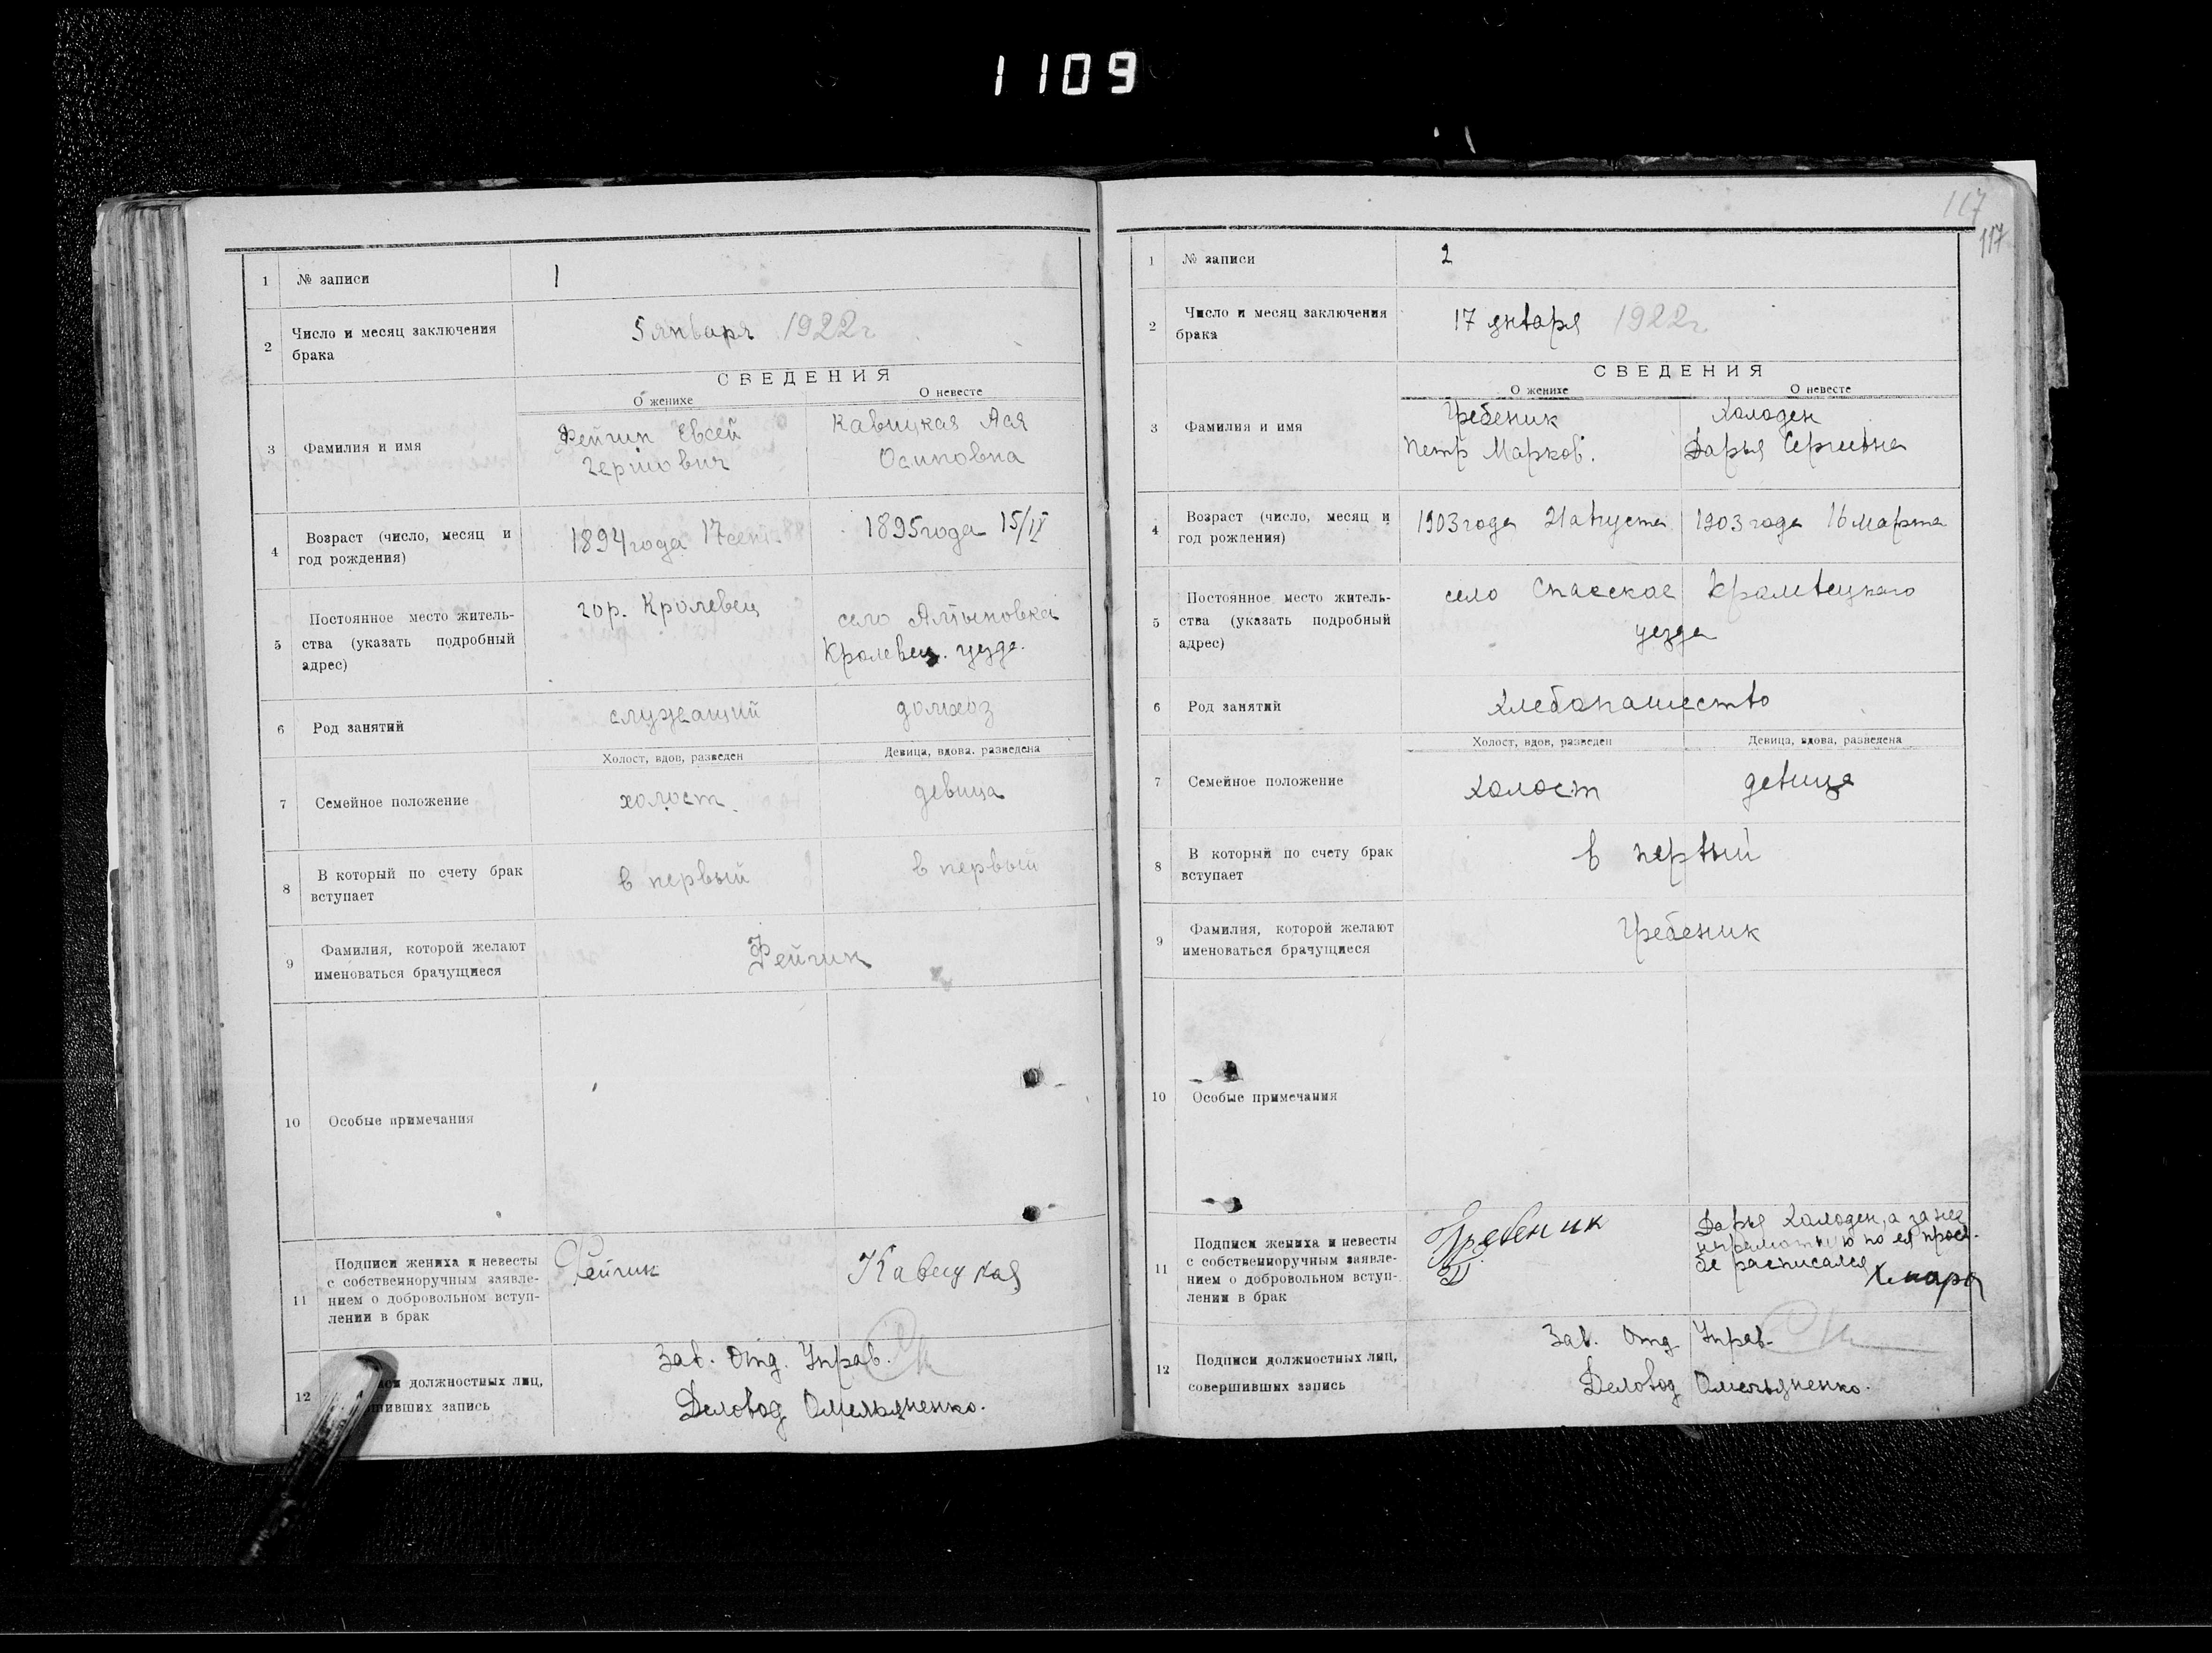 1109
1 № записи 1
2 Число и месяц заключения
брака
5 января 1922 г
СВЕДЕНИЯ
О женихе О невесте
3 Фамилия и имя
Фейгин Евсей
Гершович
Кавицкая Ася
Осиповна
4 Возраст (число, месяц и
год рождения)
1894 года 17 сент.
1895 года 15/IV
5 Постоянное место житель-
ства (указать подробный
адрес)
гор. Кролевец
село Алтыновка
Кролевец. уезда.
6 Род занятий
служащий
домхоз
Холост, вдов, разведен Девица, вдова, разведена
7 Семейное положение
холост
девица
8 В который по счету брак
вступает
в первый
в первый
9 Фамилия, которой желают
именоваться брачущиеся
Фейгин
10 Особые примечания
11 Подписи жениха и невесты
с собственноручным заявле-
нием о добровольном вступ-
лении в брак
Фейгин
Кавицкая
12 должностных лиц,
запись
Зав. Отд. Управ.
Деловод Омельяненко.
117
117
1 № записи 2
2 Число и месяц заключения
брака
17 января 1922 г
СВЕДЕНИЯ
О женихе О невесте
3 Фамилия и имя
Гребеник
Петр Марков.
Холоден
Дарья Сергиевна
4 Возраст (число, месяц и
год рождения)
1903 года 21 августа
1903 года 16 марта
5 Постоянное место житель-
ства (указать подробный
адрес)
село Спасское Кролевецкого
уезда
6 Род занятий
хлебопашество
Холост, вдов, разведен Девица, вдова, разведена
7 Семейное положение
холост
девица
8 В который по счету брак
вступает
в первый
9 Фамилия, которой желают
именоваться брачущиеся
Гребеник
10 Особые примечания
11 Подписи жениха и невесты
с собственноручным заявле-
нием о добровольном вступ-
лении в брак
Гребеник
Дарья Холоден, а за нее
неграмотную по ея прось-
бе расписался Хмара
12 Подписи должностных лиц,
совершивших запись
Зав. Отд Управ.
Деловод Омельяненко.